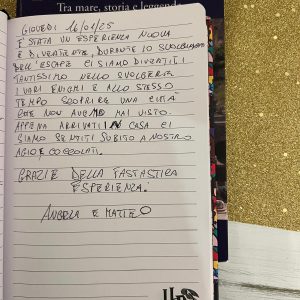 Tra mare, storia e leggende
GIOVEDÌ 16/01/25
È STATA UN ESPERIENZA NUOVA
E DIVERTENTE, DURANTE LO SVOLGIMENTO
DELL'ESCAPE CI SIAMO DIVERTITI
TANTISSIMO NELLO SVOLGERE
I VARI ENIGMI E ALLO STESSO
TEMPO SCOPRIRE UNA CITTÀ
CHE NON AVEVAMO MAI VISTO.
APPENA ARRIVATI IN CASA CI
SIAMO SENTITI SUBITO A NOSTRO
AGIO E COCCOLATI.
GRAZIE DELLA FANTASTICA
ESPERIENZA.
ANGELA E MATTEO